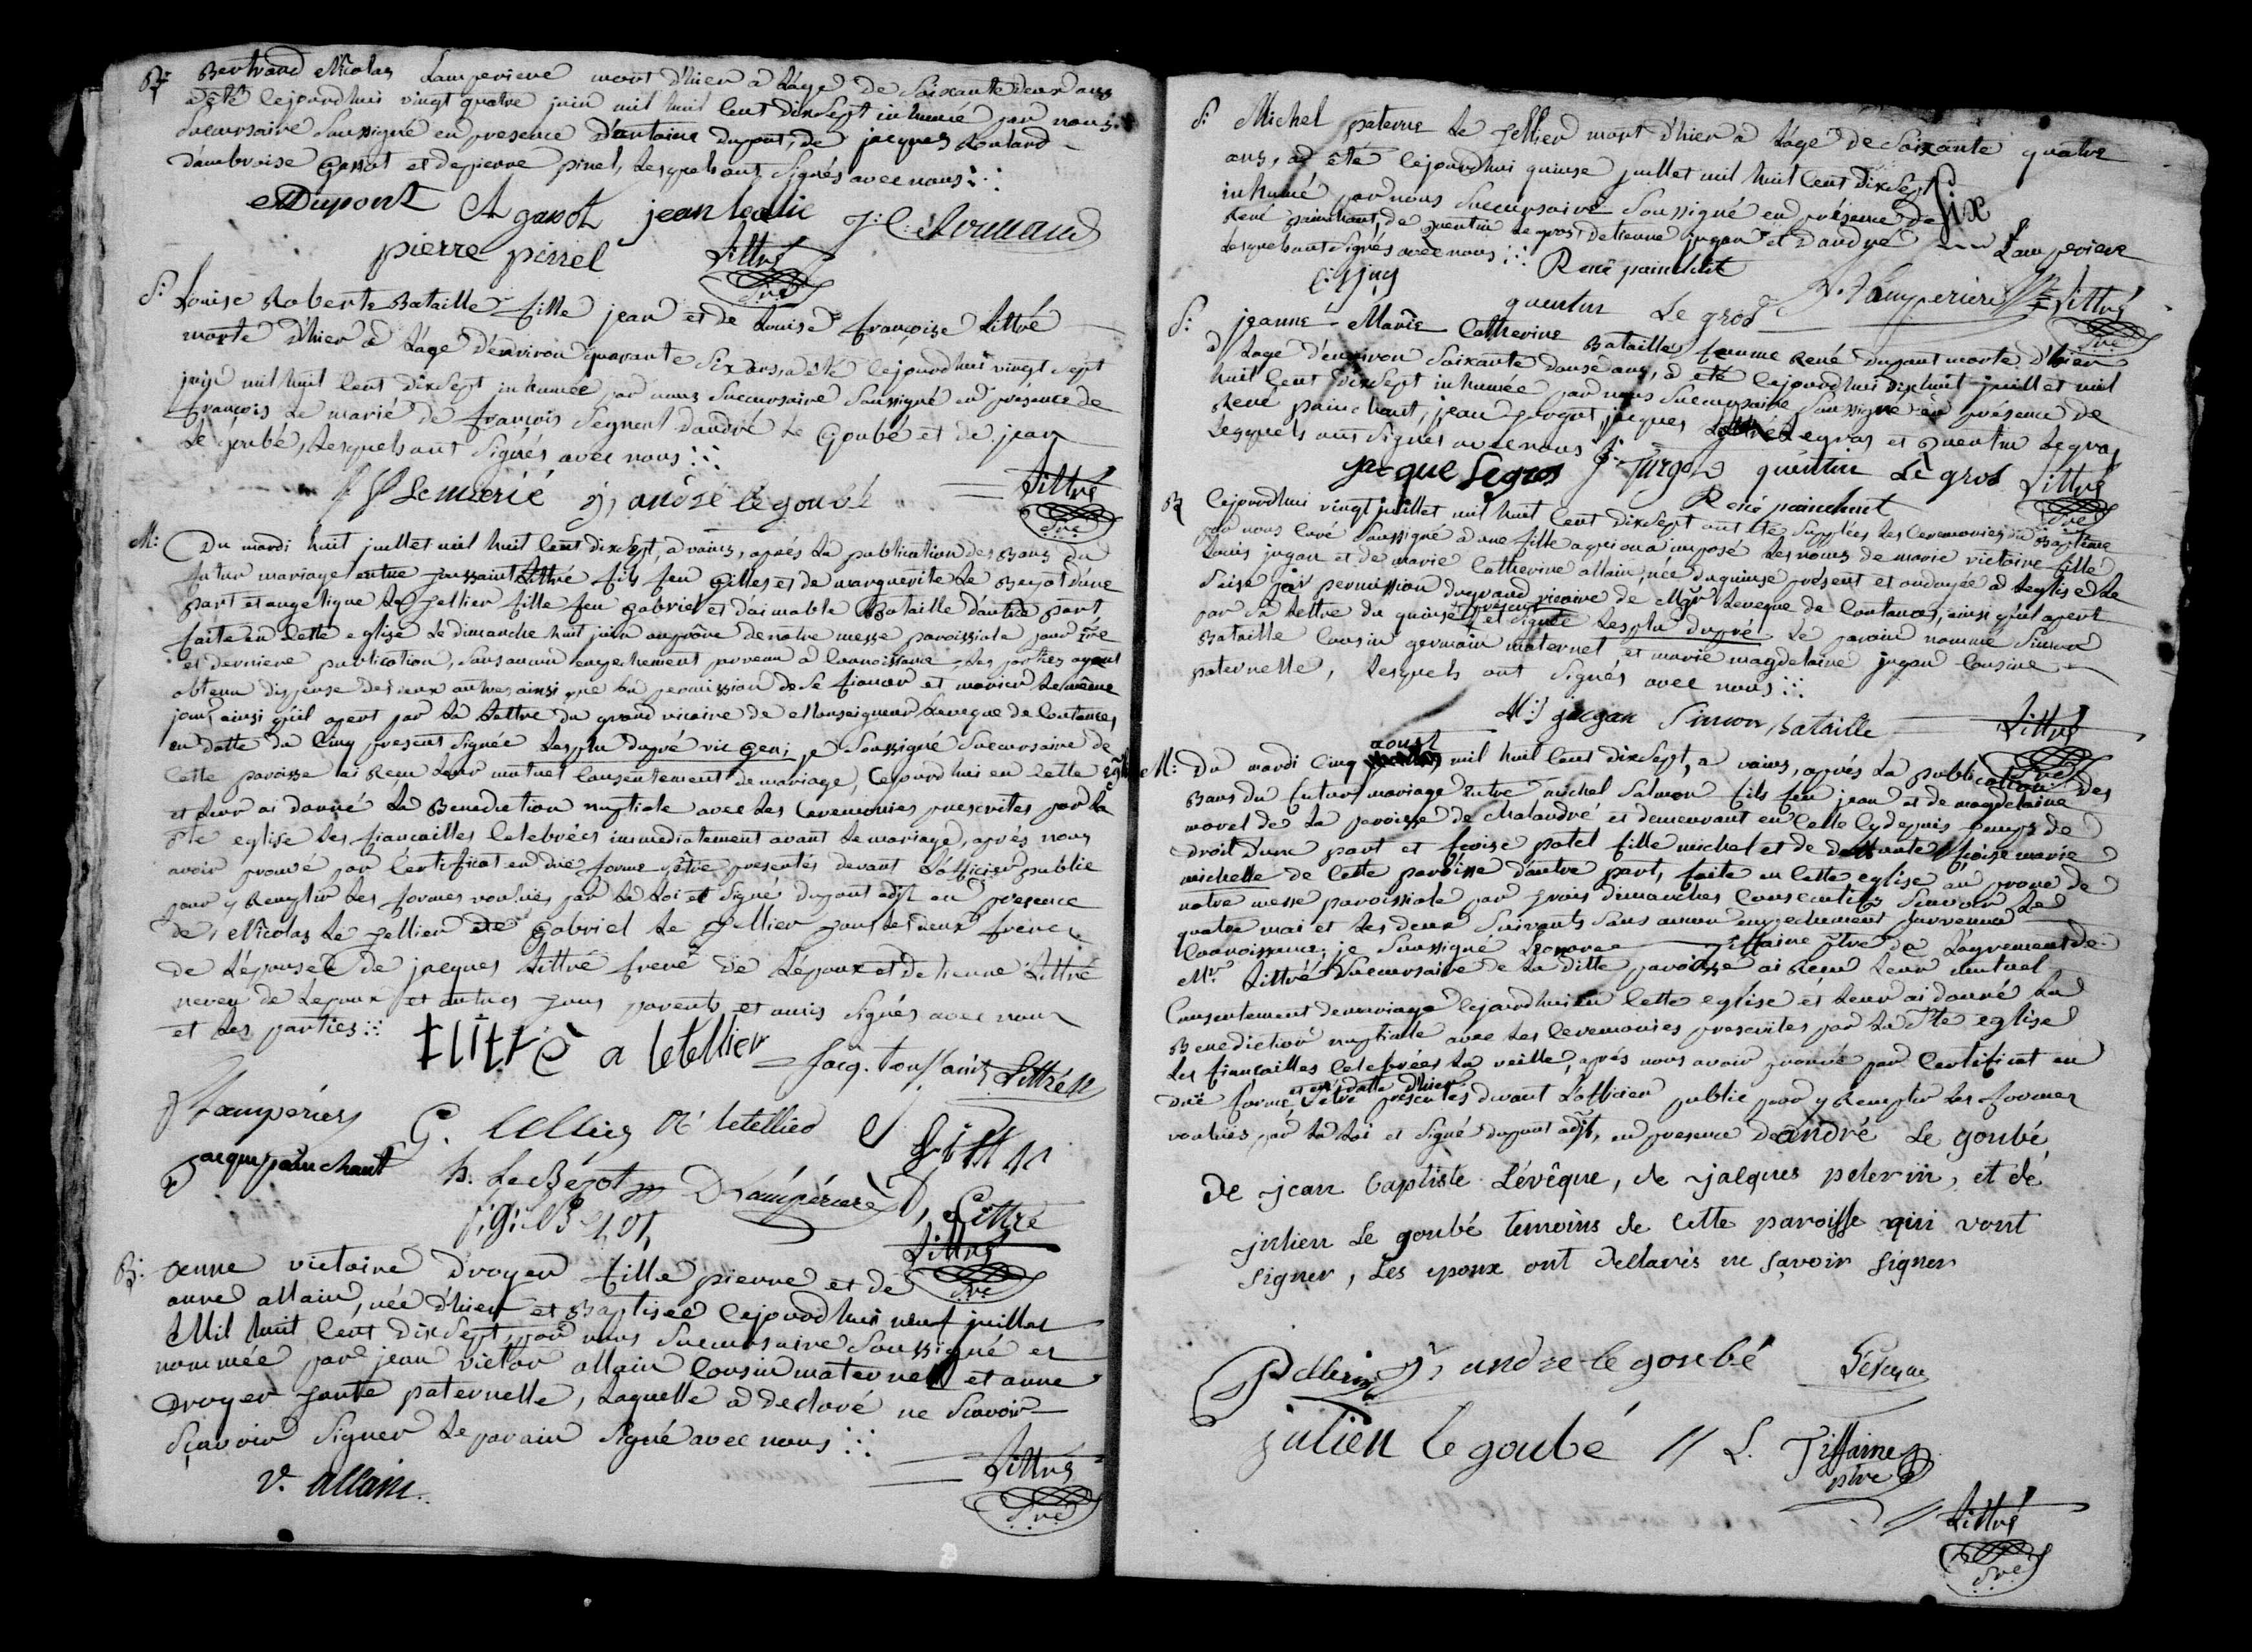 Bertrand Nicolas Lamperiere mort d'hier a Lage de Soixante deux ans
a été cejourdhui vingt quatre juin mil huit Cent dixsept inhumé par nous
Succursaire Soussigné en presence d'antoine dupont, de jacques
d'ambroise Gassot et de pierre pinel, Lesquels ont Signés avec nous
Dupont A gassot jean
pierre pinel Littré
Sre
S: Louise Roberte Bataille fille jean et de Louise françoise Littré
morte d'hier a Lage d'environ quarante Six ans, a été cejourdhui vingt Sept
juin mil huit Cent dixsept inhumée par nous Succursaire Soussigné en présence de
françois Le marié de françois Legnent d'andré Le Goubé et de jean
Le goubé, Lesquels ont Signés avec nous
Lemarié andré le goubé Littré
Sre
M: Du mardi huit juillet mil huit Cent dixsept, a vains, aprés La publication des Bans du
futur mariage entre joussaint Littré fils feu Gilles et de marguerite Le Bezot d'une
part et angelique Le Jellier fille feu gabriel et d'aimable Bataille d'autre part
faite en Cette eglise Le dimanche huit juin au prône de notre messe paroissiale pour 1ere
et derniere publication, Sans aucun empechement parvenu a Connoissance Les parties ayant
obtenu dispense des deux autres ainsi que La permission de Se fiancer et marier Le même
jour, ainsi qu'il apert par La Lettre du grand vicaire de Monseigneur Leveque de Coutances,
en datte du Cinq present Signée Lesplu dupré vic Gen; je Soussigné Succursaire de
Cette paroisse ai Recu Leur mutuel Consentement de mariage, Cejourdhui en Cette Eglise
et Leur ai donné La Benediction nuptiale avec Les Ceremonies prescrites par La
Ste eglise Les fiancailles Celebrées immediatement avant Le mariage, aprés nous
avoir prouvé par Certificat en due forme s'être presentés devant L'officier public
pour y Remplir Les formes voulues par La Loi et Signé dupont adjt en presence
de, Nicolas Le Jellier de Gabriel Le Jellier jous Les deux freres
de L'epouse de jacques Littré frere de L'epoux et detienne Littré
neveu de Lepoux et autres jous parents et amis Signés avec nous
et Les parties
tlitré a letellier Jacq. toussaint Littré
Lamperiere G. letellier N letellier
jacque painchant h. LeBézot Lampérière D, Littré
Littré
Sre
B: anne victoire Droyer fille pierre et de
anne allain, née d'hier et Baptisée Cejourdhui neuf juillet
Mil huit Cent dixsept, par nous Succursaire Soussigné et
nommée par jean victor allain Cousin maternel et anne
Droyer jante paternelle, Laquelle a declaré ne Scavoir
Sçavoir Signer Le parain Signé avec nous
v. allain Littré
Sre
S: Michel paterne Le Jellier mort d'hier a Lage de Soixante quatre
ans, a été Cejourdhui quinse juillet mil huit Cent dixsept
inhumé par nous Succursaire Soussigné en présence de Six
René painchant, de quentin Legros, detienne jugan et d'andré Lamperiere
Lesquels ont Signés avec nous René painchant
quentin Le gros Lamperiere Littré
Sre
S: jeanne Marie Catherine Bataille femme René dupont morte d'hier
a Lage d'environ Soixante douse ans, a eté Cejourdhui dixhuit juillet mil
huit Cent dixsept inhumée par nous Succursaire Soussigné en présence de
René painchant, jean jurgot, jacques Legros et quentin Legros
Lesquels ont Signés avec nous
jacque Legros quentin Le gros Littré
René painchant Sre
B Cejourdhui vingt juillet mil huit Cent dixsept ont été Supplées Les Ceremonies du Baptême
par nous Curé Soussigné a une fille a qui on a imposé Les noms de marie victoire fille
Louis jugan et de marie Catherine allain, née du quinse présent et ondoyée a Leglise Le
Seise par permission du grand vicaire de Mgr Leveque de Coutances, ainsi qu'il apert
par Sa Lettre du quinse présent et Signée Lesplu dupré Le parain nommé Simon
Bataille Cousin germain maternel et marie magdelaine jugan Cousine
paternelle, Lesquels ont Signés avec nous
M: jugan Simon Bataille Littré
Sre
M: Du mardi Cinq aoust mil huit Cent dixsept, a vains, aprés La publication des
Bans du futur mariage entre michel Salmon fils feu jean et de magdelaine
morel de La paroisse de Chalandré et demeurant en Celle Cy depuis temps de
droit d'une part et fçoise potel fille michel et de fçoise marie
michelle de Cette paroisse d'autre part, faite en Cette eglise au prone de
notre messe paroissiale par trois dimanches Consecutifs Scavoir Le
quatre mai et Les deux Suivants Sans aucun empechement parvenu a
Connoissance; je Soussigné Leonore Tiffaine ptre de L'agrement de
Mr Littré Succursaire de La ditte paroisse ai Recu Leur mutuel
Consentement de mariage Cejourdhui en Cette eglise et Leur ai donné La
Benediction nuptiale avec Les Ceremonies prescrites par La Ste eglise
Les fiancailles Celebrées La veille, aprés nous avoir prouvé par Certificat en
due forme et en datte d'hier s'être présentés devant L'officier public pour y Remplir Les formes
voulues par La Loi et Signé dupont adjt, en presence de andré Le goubé,
de jean baptiste Lévêque, de jacques pelerin, et de
julien Le goubé temoins de Cette paroisse qui vont
signer, Les epoux ont dellarés ne sçavoir signer
Pellerin andre le goubé
julien le goubé L. Tiffaine
ptre
Littré
Sre